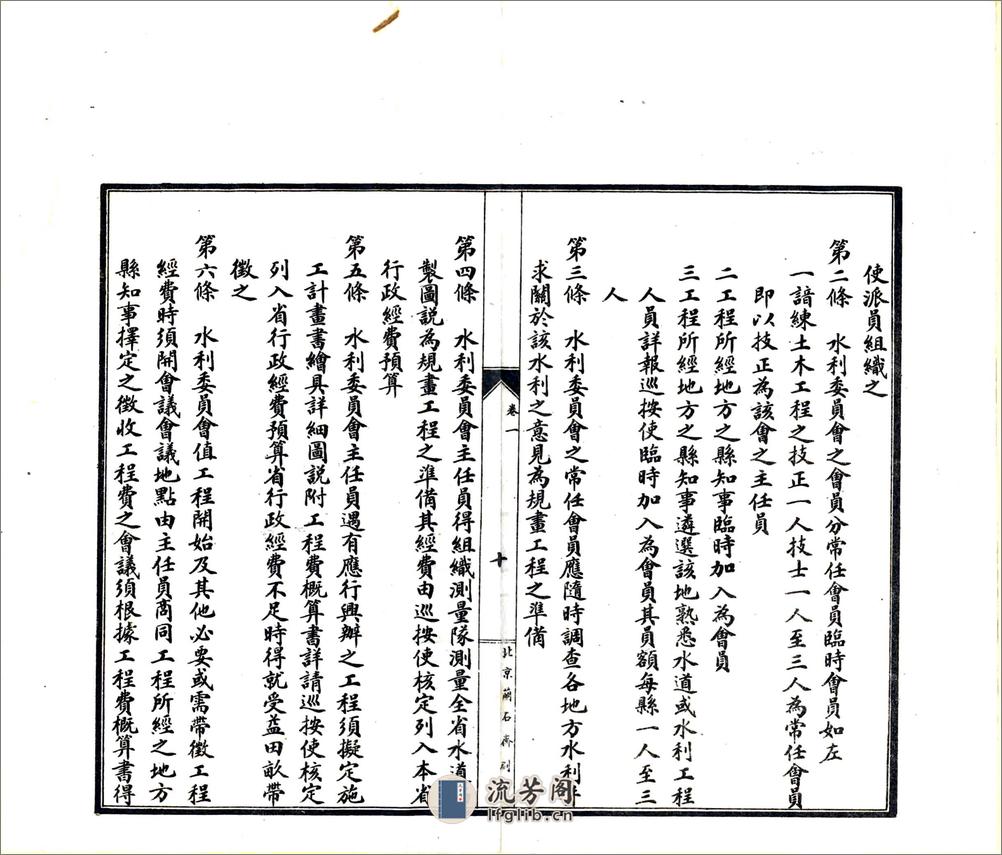 使派員組織之
第二條　水利委員會之會員分常任會員臨時會員如左
一諳練土木工程之技正一人技士一人至三人為常任會員
即以技正為該會之主任員
二工程所經地方之縣知事臨時加入為會員
三工程所經地方之縣知事遴選該地熟悉水道或水利工程
人員詳報巡按使臨時加入為會員其員額每縣一人至三
人
第三條　水利委員會之常任會員應隨時調查各地方水利并
求關於該水利之意見為規畫工程之準備
卷一
十
北京蘭石齋刻
第四條　水利委員會主任員得組織測量隊測量全省水道
製圖說為規畫工程之準備其經費由巡按使核定列入本省
行政經費預算
第五條　水利委員會主任員遇有應行興辦之工程須擬定施
工計畫書繪具詳細圖說附工程費概算書詳請巡按使核定
列入省行政經費預算省行政經費不足時得就受益田畝帶
徵之
第六條　水利委員會值工程開始及其他必要或需帶徵工程
經費時須開會議會議地點由主任員商同工程所經之地方
縣知事擇定之徵收工程費之會議須根據工程費概算書得
流芳阁
lfglib.cn